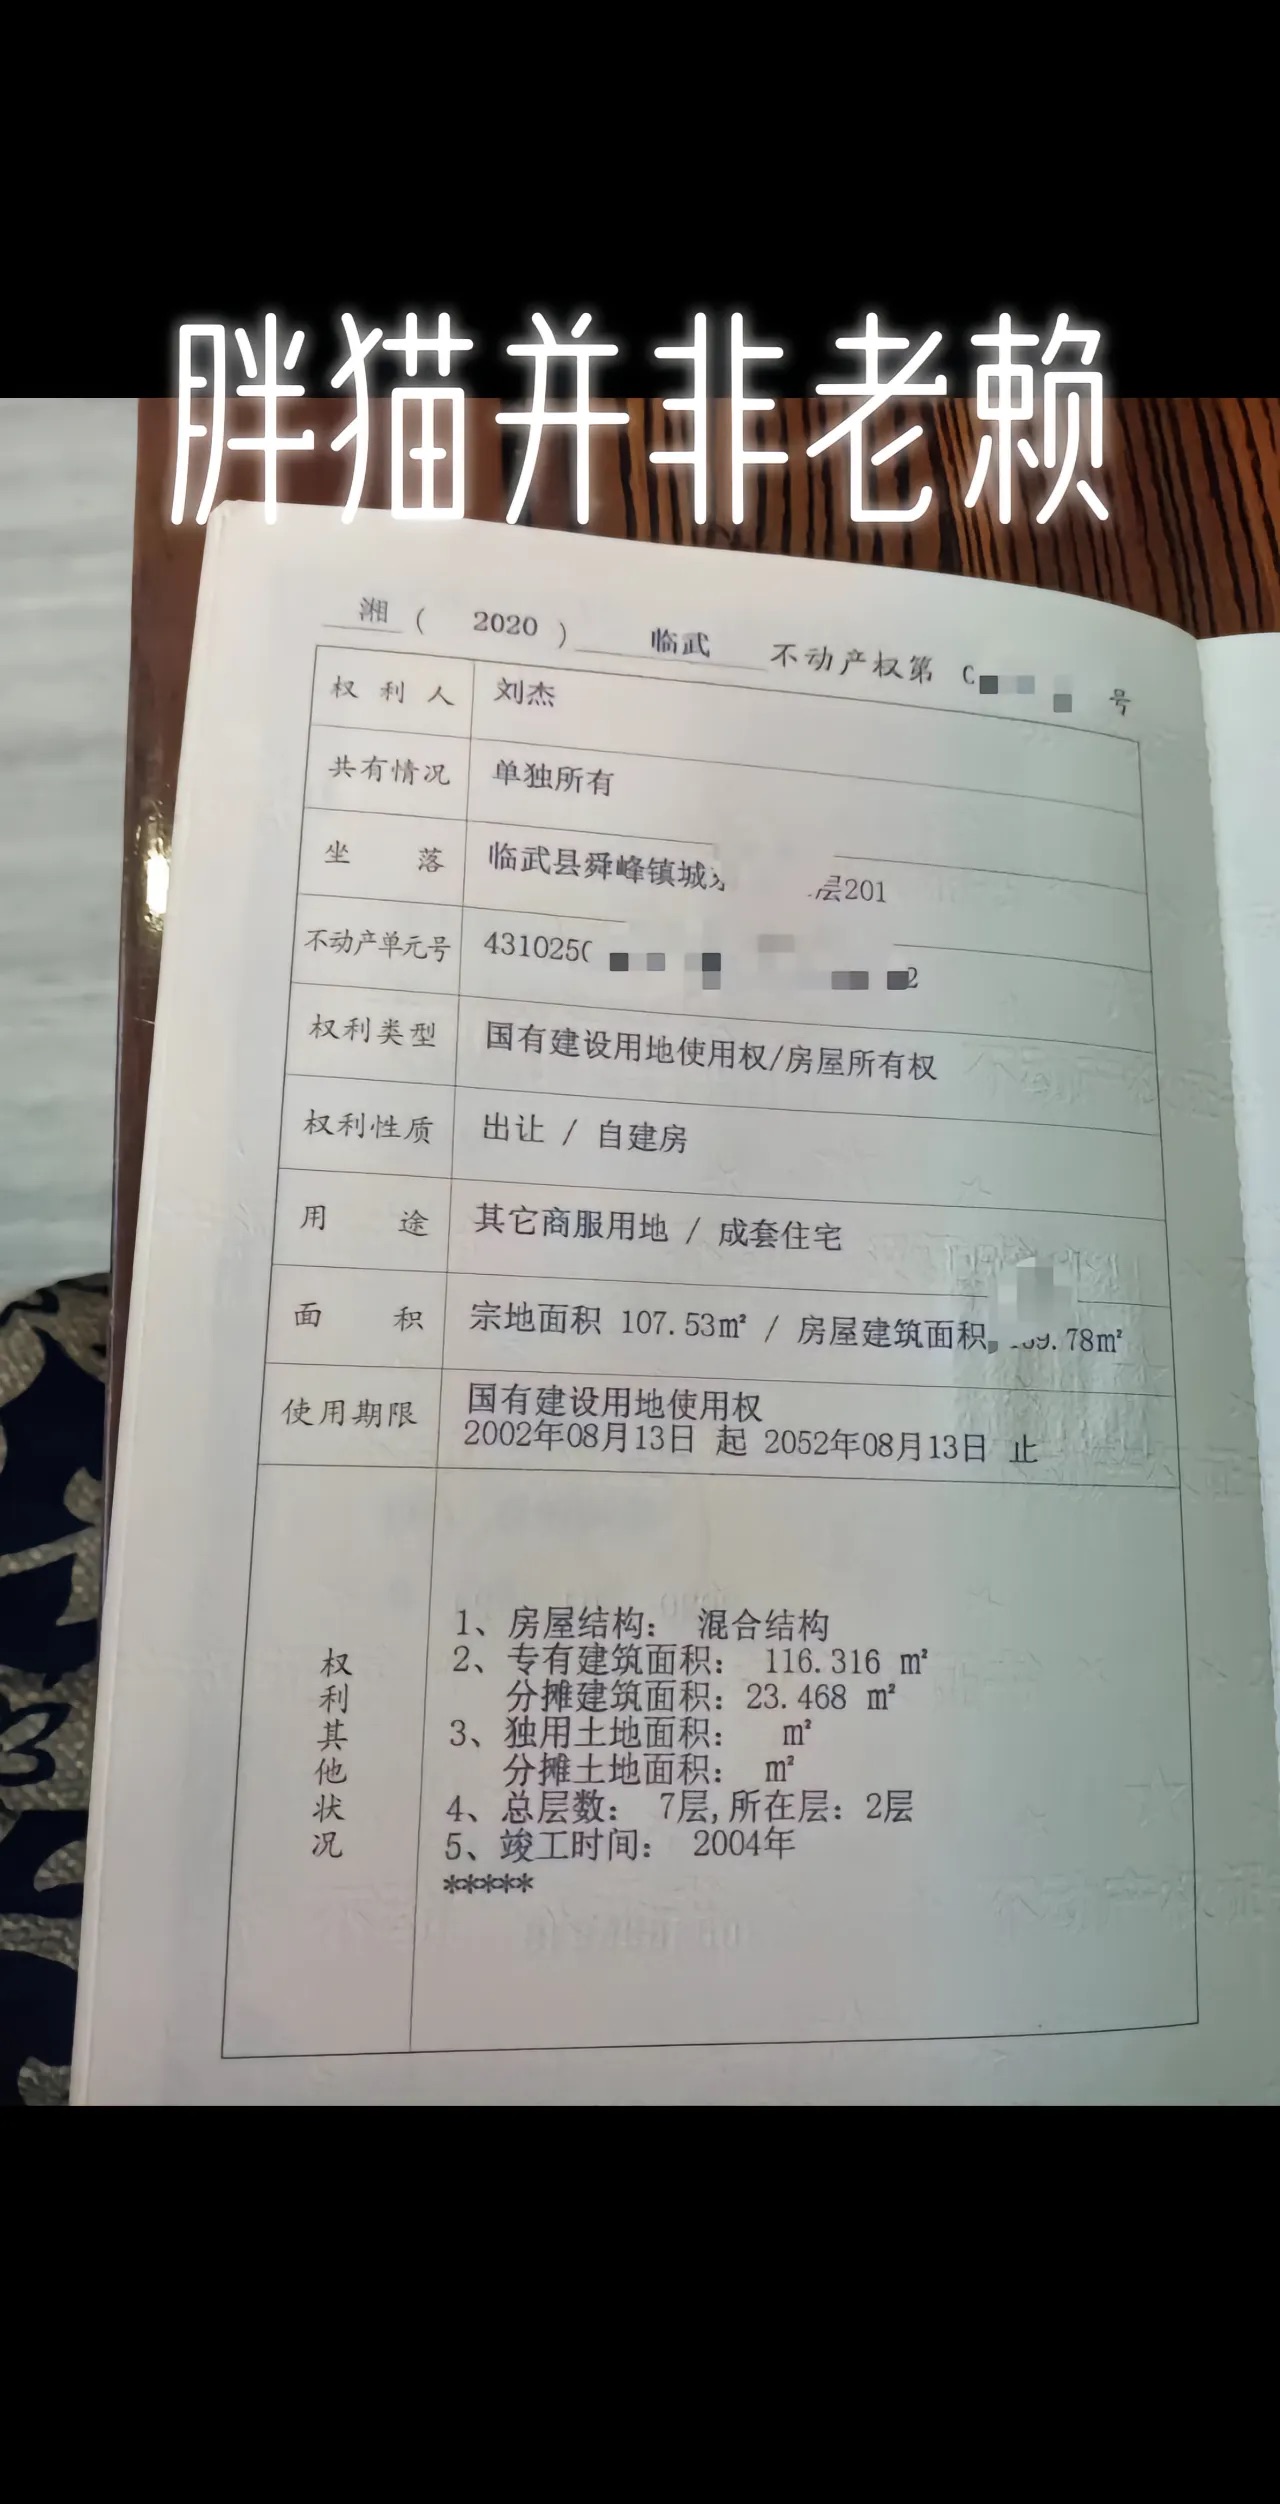 胖猫并非老赖
湘 ( 2020 ) 临武 不动产权第 号
权利人 刘杰
共有情况 单独所有
坐落 临武县舜峰镇城 层201
不动产单元号 431025
权利类型 国有建设用地使用权/房屋所有权
权利性质 出让 / 自建房
用途 其它商服用地 / 成套住宅
面积 宗地面积 107.53㎡ / 房屋建筑面积 9.78㎡
使用期限 国有建设用地使用权
2002年08月13日 起 2052年08月13日 止
权利其他状况
1、房屋结构： 混合结构
2、专有建筑面积： 116.316 ㎡
分摊建筑面积：23.468 ㎡
3、独用土地面积： ㎡
分摊土地面积： ㎡
4、总层数： 7层,所在层：2层
5、竣工时间： 2004年
*****